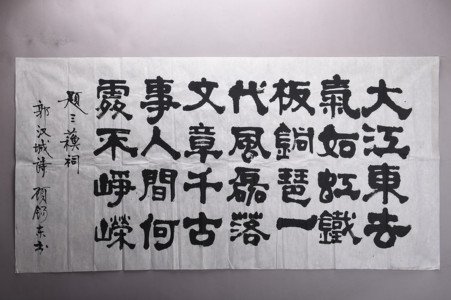 大江東去
氣如虹鐵
板銅琶一
代風磊落
文章千古
事人間何
處不崢嶸
題三蘇祠
郭汉城诗 顾